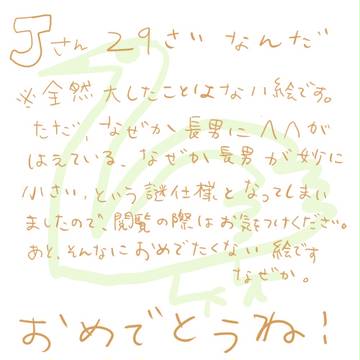 Jさん 29さいなんだ
※全然大したことはない絵です。
ただ、なぜか長男にヘヘが
はえている、なぜか長男が妙に
小さい、という謎仕様となってしまい
ましたので、閲覧の際はお気をつけください。
あと、そんなにおめでたくない絵です
なぜか。
おめでとうね!